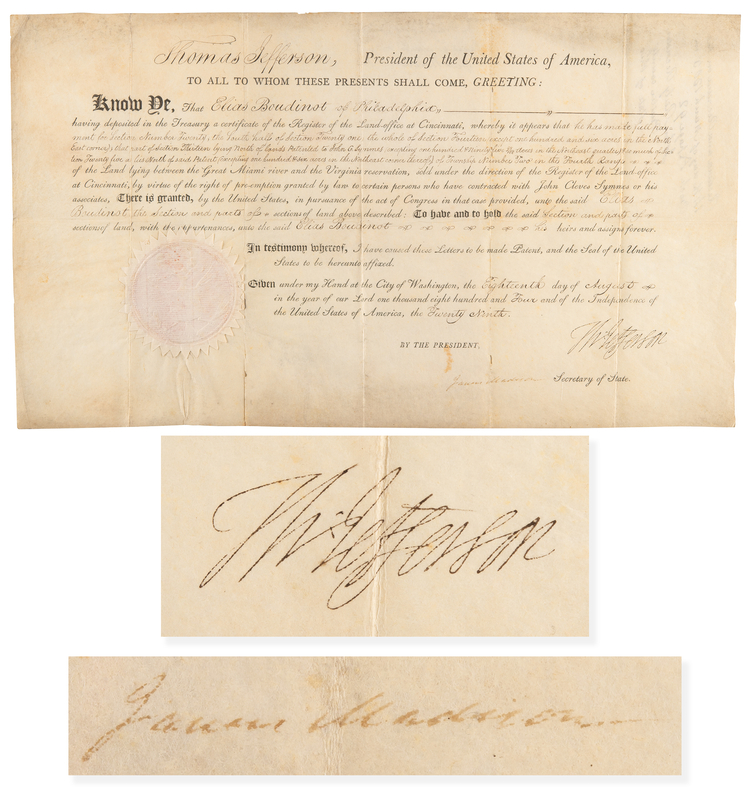 Thomas Jefferson, President of the United States of America,
TO ALL TO WHOM THESE PRESENTS SHALL COME, GREETING:
Know Ye, That Elias Boudinot of Philadelphia,
having deposited in the Treasury a certificate of the Register of the Land-office at Cincinnati, whereby it appears that he has made full pay-
ment for Section Number Twenty, the South halfs of Section Twenty one the whole of Section Fourteen except one hundred and six acres in the North
East corner, that part of Section Thirteen lying North of lands Patented to John C Symmes,
of Township Number Two in the Fourth Range
of the Land lying between the Great Miami river and the Virginia reservation, sold under the direction of the Register of the Land-office
at Cincinnati, by virtue of the right of pre-emption granted by law to certain persons who have contracted with John Cleves Symmes or his
associates, There is granted, by the United States, in pursuance of the act of Congress in that case provided, unto the said Elias
Boudinot the Section and parts of section of land above described: To have and to hold the said Section and parts of
section of land, with the appurtenances, unto the said Elias Boudinot heirs and assigns forever.
In testimony whereof, I have caused these Letters to be made Patent, and the Seal of the United
States to be hereunto affixed.
Given under my Hand at the City of Washington, the Eighteenth day of August
in the year of our Lord one thousand eight hundred and Four and of the Independence of
the United States of America, the Twenty Ninth.
Th: Jefferson
BY THE PRESIDENT,
James Madison Secretary of State.
Th: Jefferson
James Madison